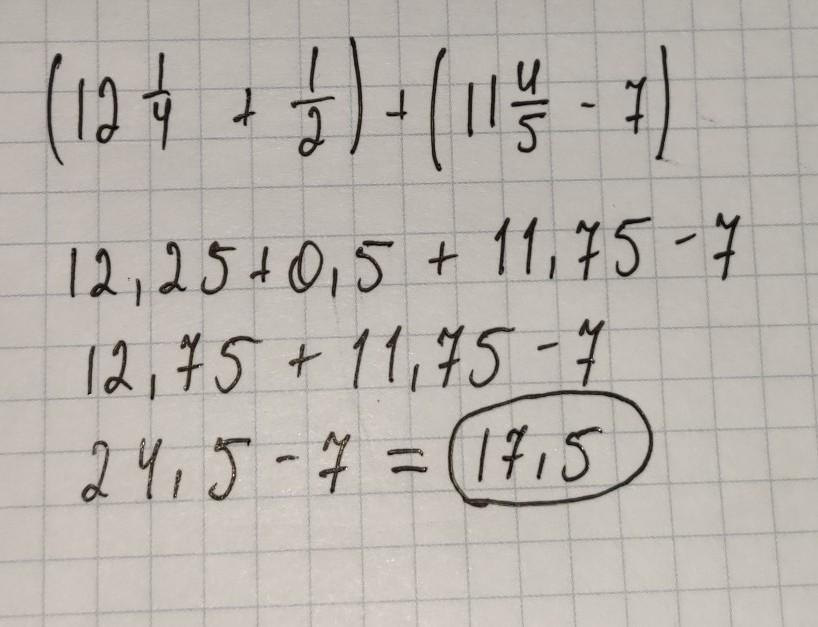 (12 1/4 + 1/2) + (11 4/5 - 7)
12,25 + 0,5 + 11,75 - 7
12,75 + 11,75 - 7
24,5 - 7 = 17,5